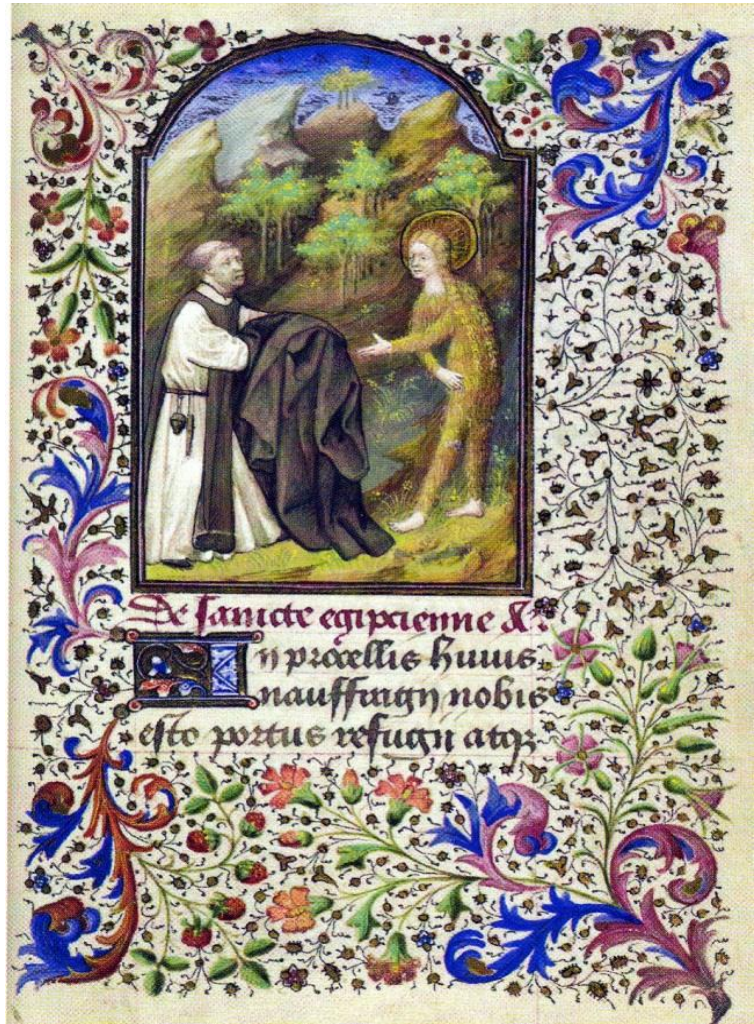 De sancte egipcienne &
In procellis huius
nauffragij nobis
esto portus refugij atqz